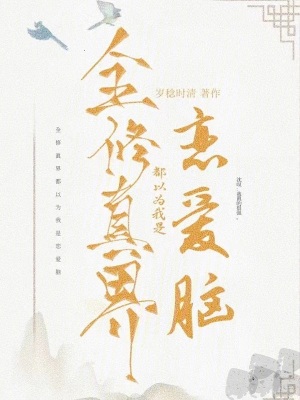 全修真界
都以为我是
恋爱脑
罗稔时清 著作
全修真界都以为我是恋爱脑